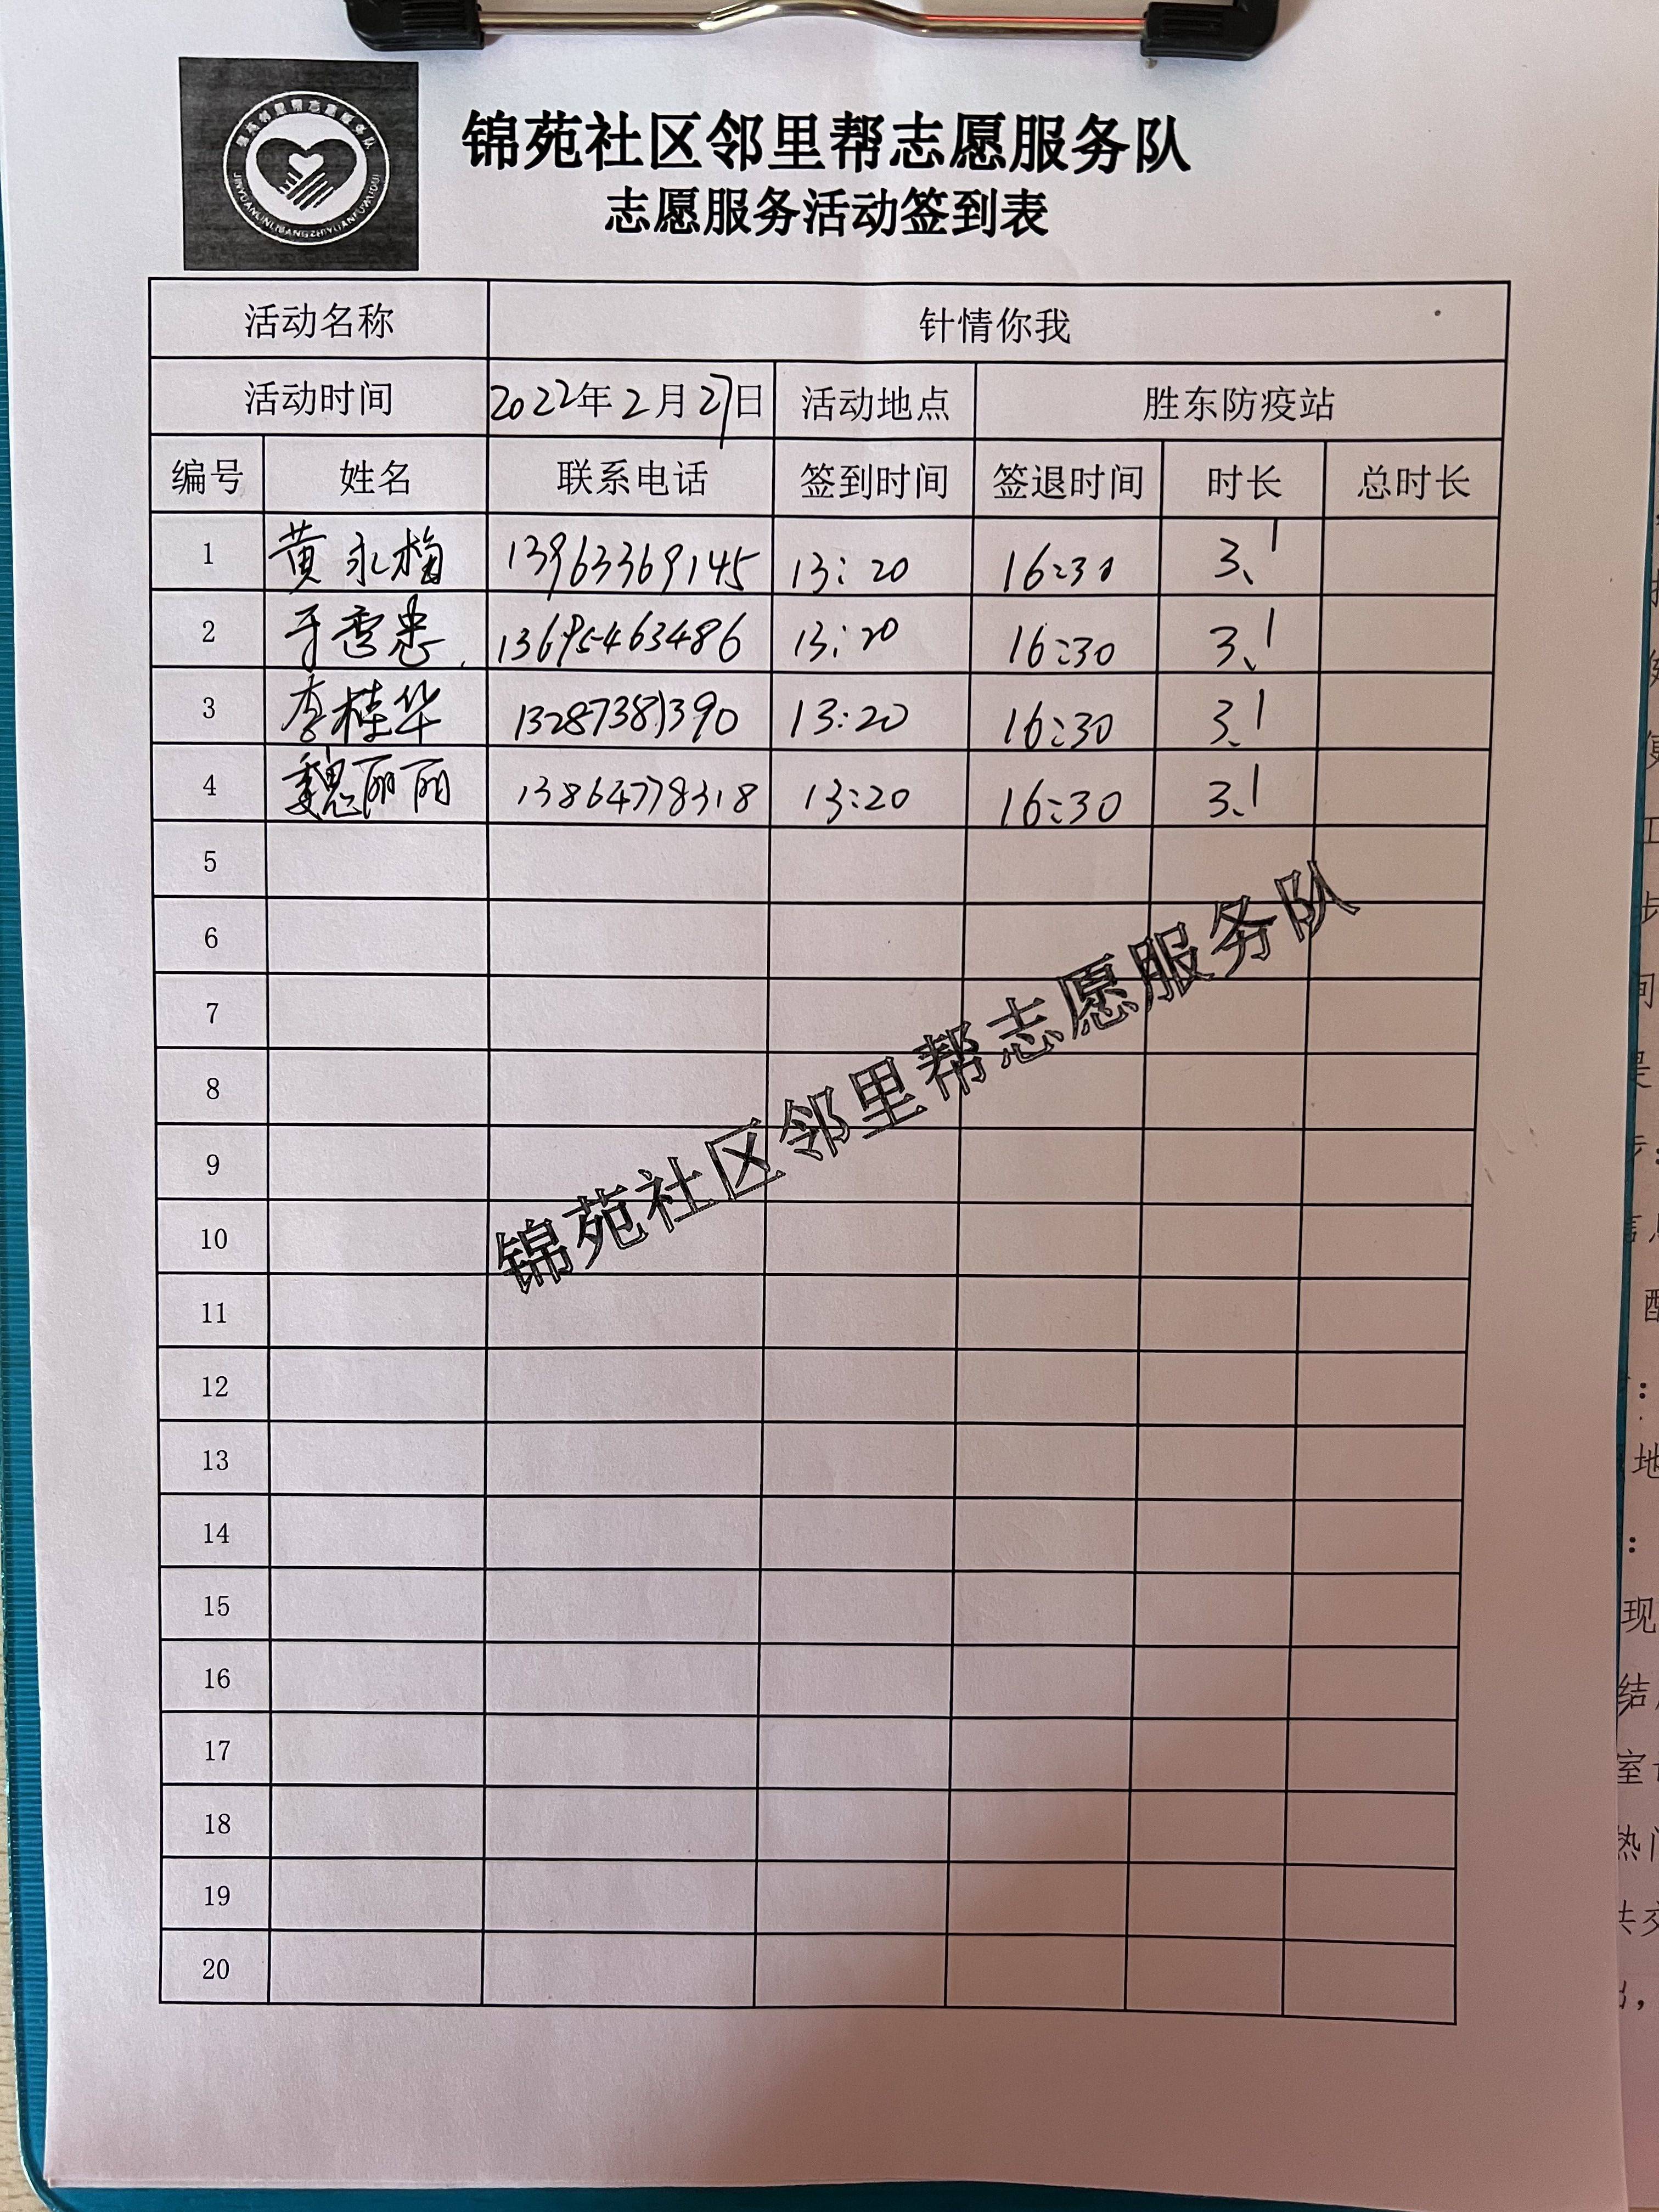 锦苑邻里帮志愿服务队
JINYUANLINLIBANGZHIYUANFUWUDUI
锦苑社区邻里帮志愿服务队
志愿服务活动签到表
活动名称 针情你我
活动时间 2022年2月27日 活动地点 胜东防疫站
编号 姓名 联系电话 签到时间 签退时间 时长 总时长
1 黄永梅 13963369145 13:20 16:30 3.1
2 于雪忠 13695463486 13:20 16:30 3.1
3 李桂华 13287381390 13:20 16:30 3.1
4 魏丽丽 13864778318 13:20 16:30 3.1
5
6
7
8
9
10
11
12
13
14
15
16
17
18
19
20
锦苑社区邻里帮志愿服务队